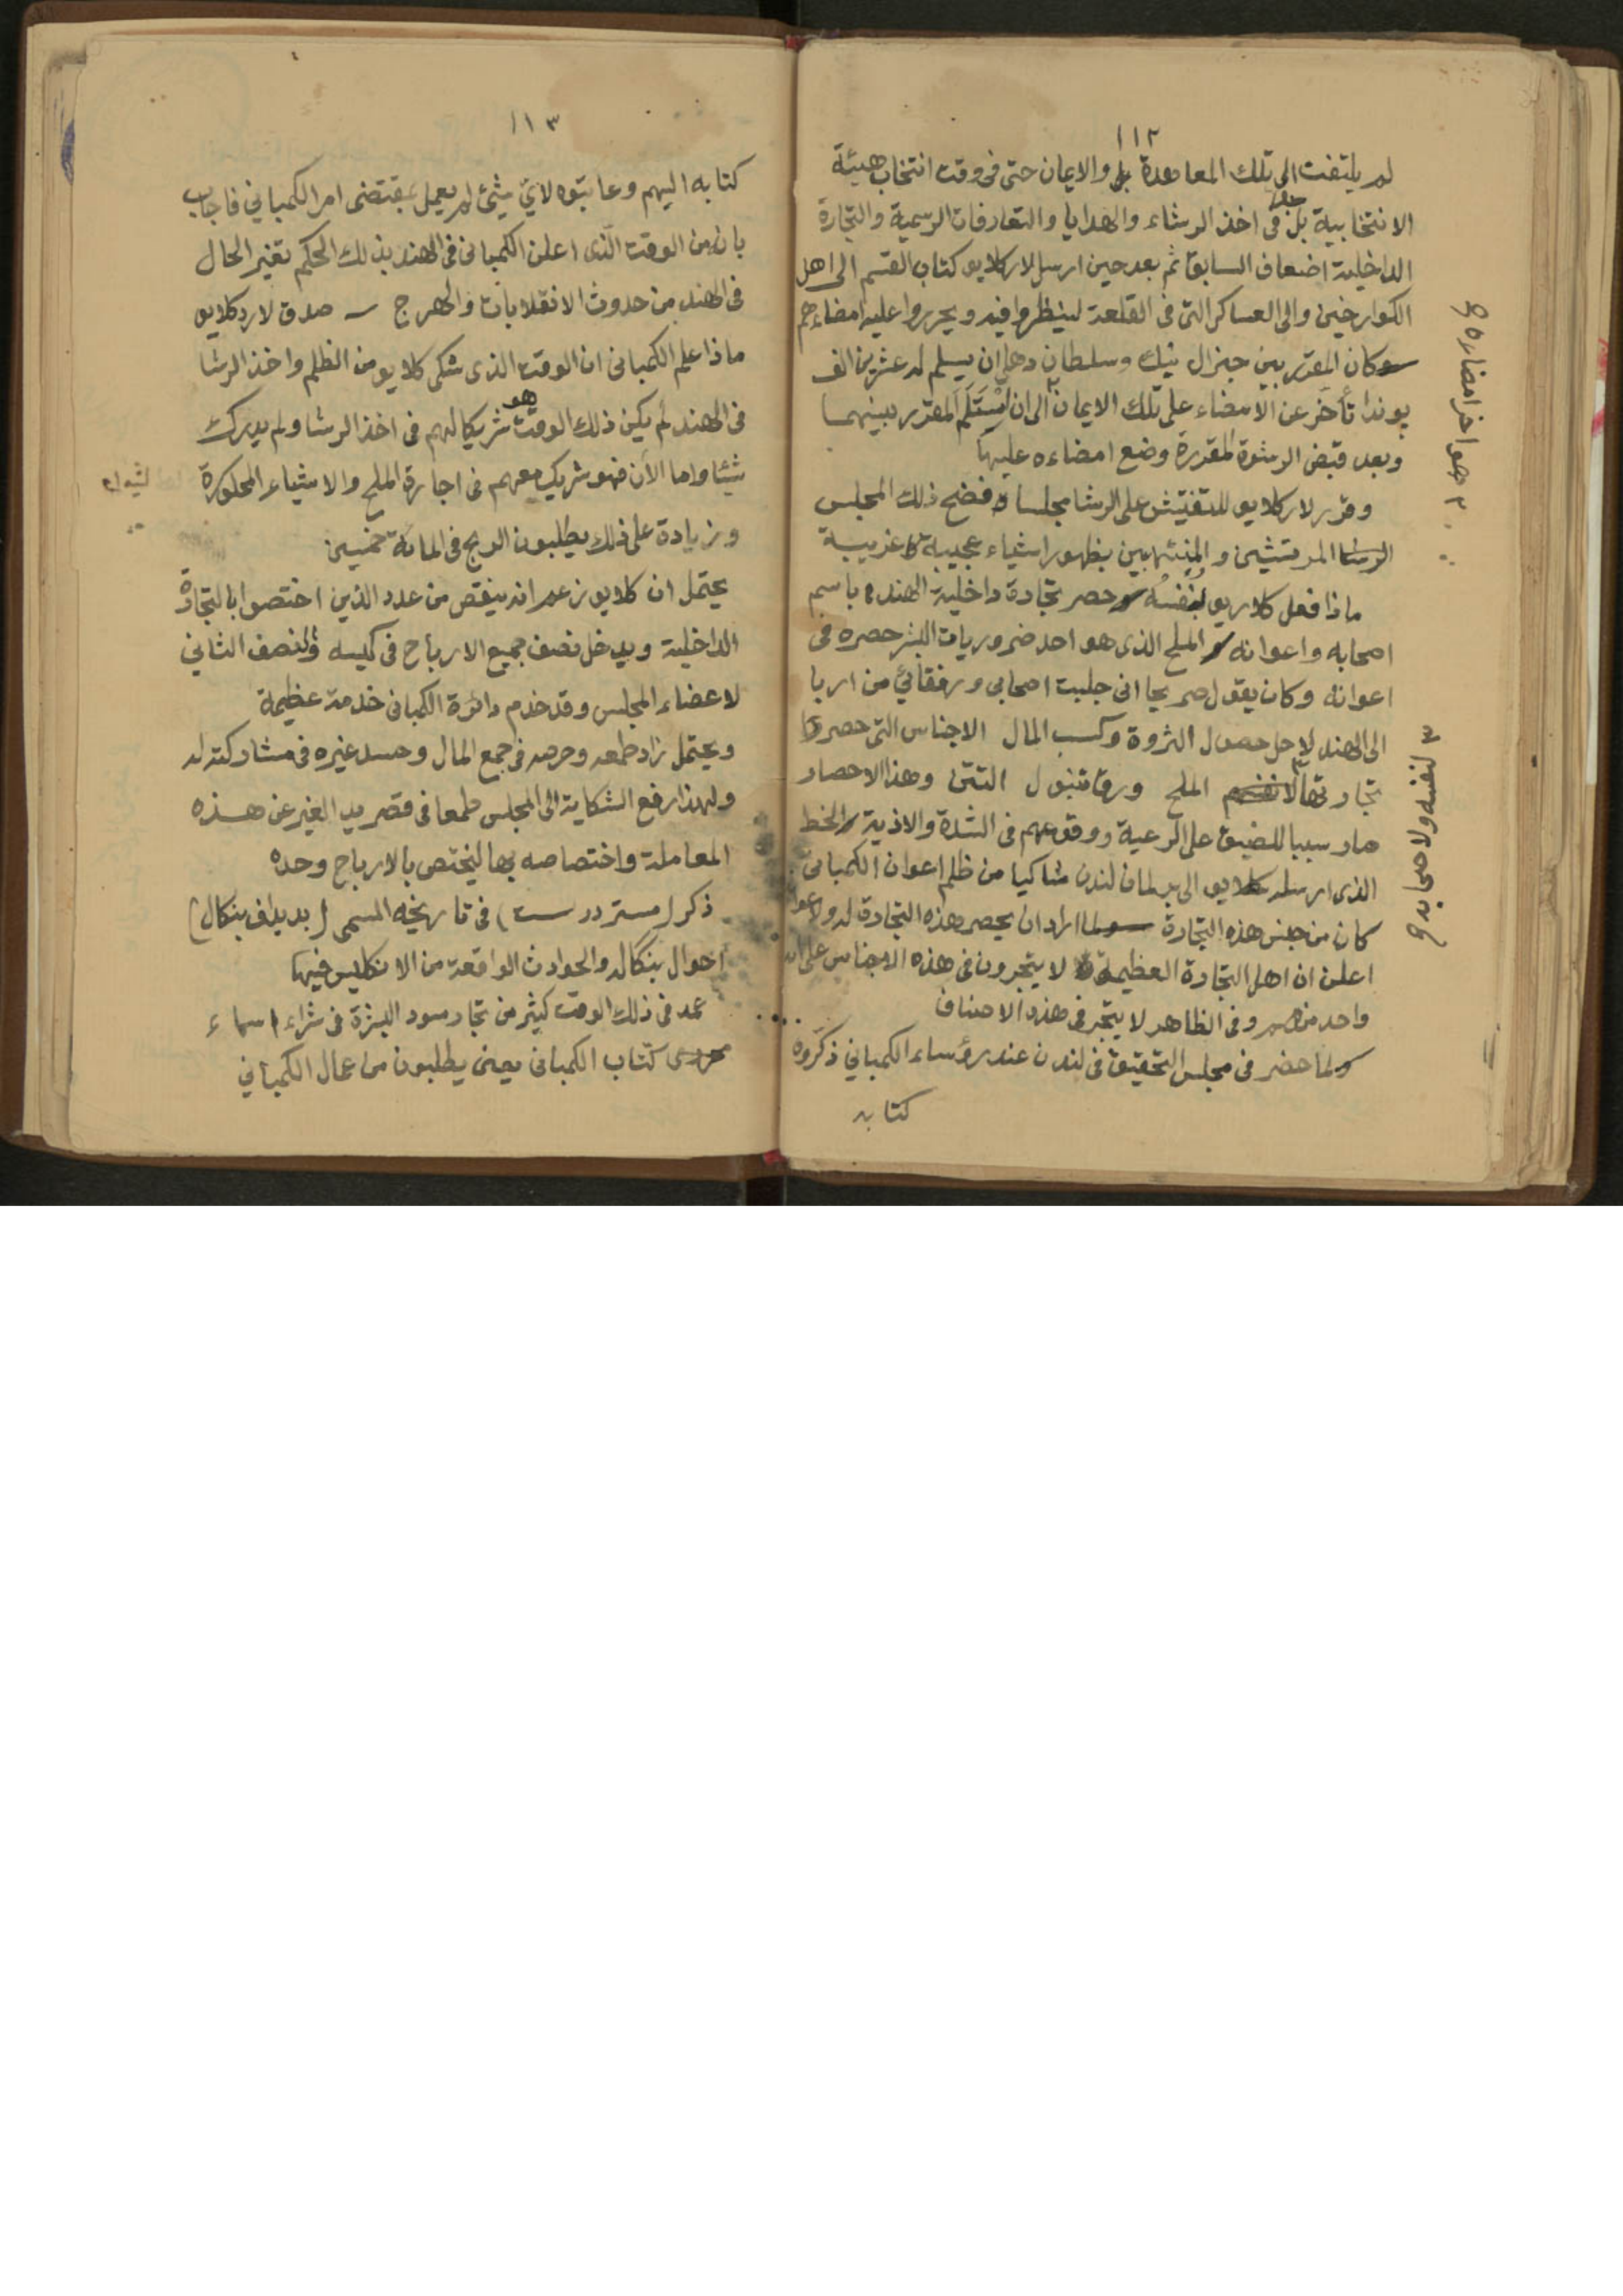 ١١٢
لم يلتفت الى تلك المعاهدة والايمان حتى فى وقت انتخاب هيئة
الانتخابية بل فى اخذ الرشاء والهدايا والتعارفات الرسمية والتجارة
الداخلية اضعاف السابق ثم بعد حين ارسل لارد كلايو كتاب القسم الى اهل
الكوارخين والى العساكر التى فى القلعة لينظروا فيه ويحرروا عليه امضاءهم
وكان المقرر بين جنرال نيك وسلطان دهلى ان يسلم له عشرين الف
پوند تأخر عن الامضاء على تلك الايمان ٢ الى ان يستلم المقرر بينهما
وبعد قبض الرشوة المقررة وضع امضاءه عليها
وقرر لارد كلايو للتفتيش على الرشا مجلسا ففضح ذلك المجلس
المرتشين والمنتهبين بظهور اشياء عجيبة غريبة
ماذا فعل كلايو بنفسه حصر تجارة داخلية الهند باسم
اصحابه واعوانه الملح الذى هو احد ضروريات البشر حصره فى
اعوانه وكان يقول صريحا انى جلبت اصحابى ورفقائى من اربا
الى الهند لاجل حصول الثروة وكسب المال الاجناس التى حصروا
تجارتها ٣ الملح ورق تنبول التتن وهذا الاحصار
صار سببا للضيق على الرعية ووقوعهم فى الشدة والاذية الخط
الذى ارسله كلايو الى برلمان لندن شاكيا من ظلم اعوان الكمبانى
كان من جنس هذه التجارة ولما اراد ان يحصر هذه التجارة له ولاعوا
اعلن ان اهل التجارة العظيمة لا يتجرون فى هذه الاجناس على انه
واحد منهم وفى الظاهر لا يتجر فى هذه الاصناف
ولما حضر فى مجلس التحقيق فى لندن عند رؤساء الكمبانى ذكروه
كتابه
٢ هو اخر امضاءه صح
٣ لنفسه ولاصحابه صح
١١٣
كتابه اليهم وعاتبوه لاى شئ لم يعمل بمقتضى امر الكمبانى فاجاب
بان من الوقت الذى اعلن الكمبانى فى الهند بذلك الحكم تغير الحال
فى الهند من حدوث الانقلابات والهرج صدق لارد كلايو
ماذا علم الكمبانى ان الوقت الذى شكى كلايو من الظلم واخذ الرشا
فى الهند لم يكن ذلك الوقت هو شريكا لهم فى اخذ الرشا ولم يدرك
شيئا واما الآن فهو شريك معهم فى اجارة الملح والاشياء المحكورة
وزيادة على ذلك يطلبون الربح فى المائة خمسين
يحتمل ان كلايو زعم انه ينقص من عدد الذين اختصوا بالتجارة
الداخلية ويدخل نصف جميع الارباح فى كيسه والنصف الثانى
لاعضاء المجلس وقد خدم دائرة الكمبانى خدمة عظيمة
ويحتمل زاد طمعه وحرصه فى جمع المال وحسد غيره فى مشاركته له
ولهذا رفع الشكاية الى المجلس طمعا فى قصر يد الغير عن هذه
المعاملة واختصاصه بها ليختص بالارباح وحده
ذكر (مستر درست) فى تاريخه المسمى (بديداف بنكال)
احوال بنكاله والحوادث الواقعة من الانكليس فيها
عمد فى ذلك الوقت كثير من تجار سود البشرة فى شراء اسماء
كتّاب الكمبانى يعنى يطلبون من عمال الكمبانى